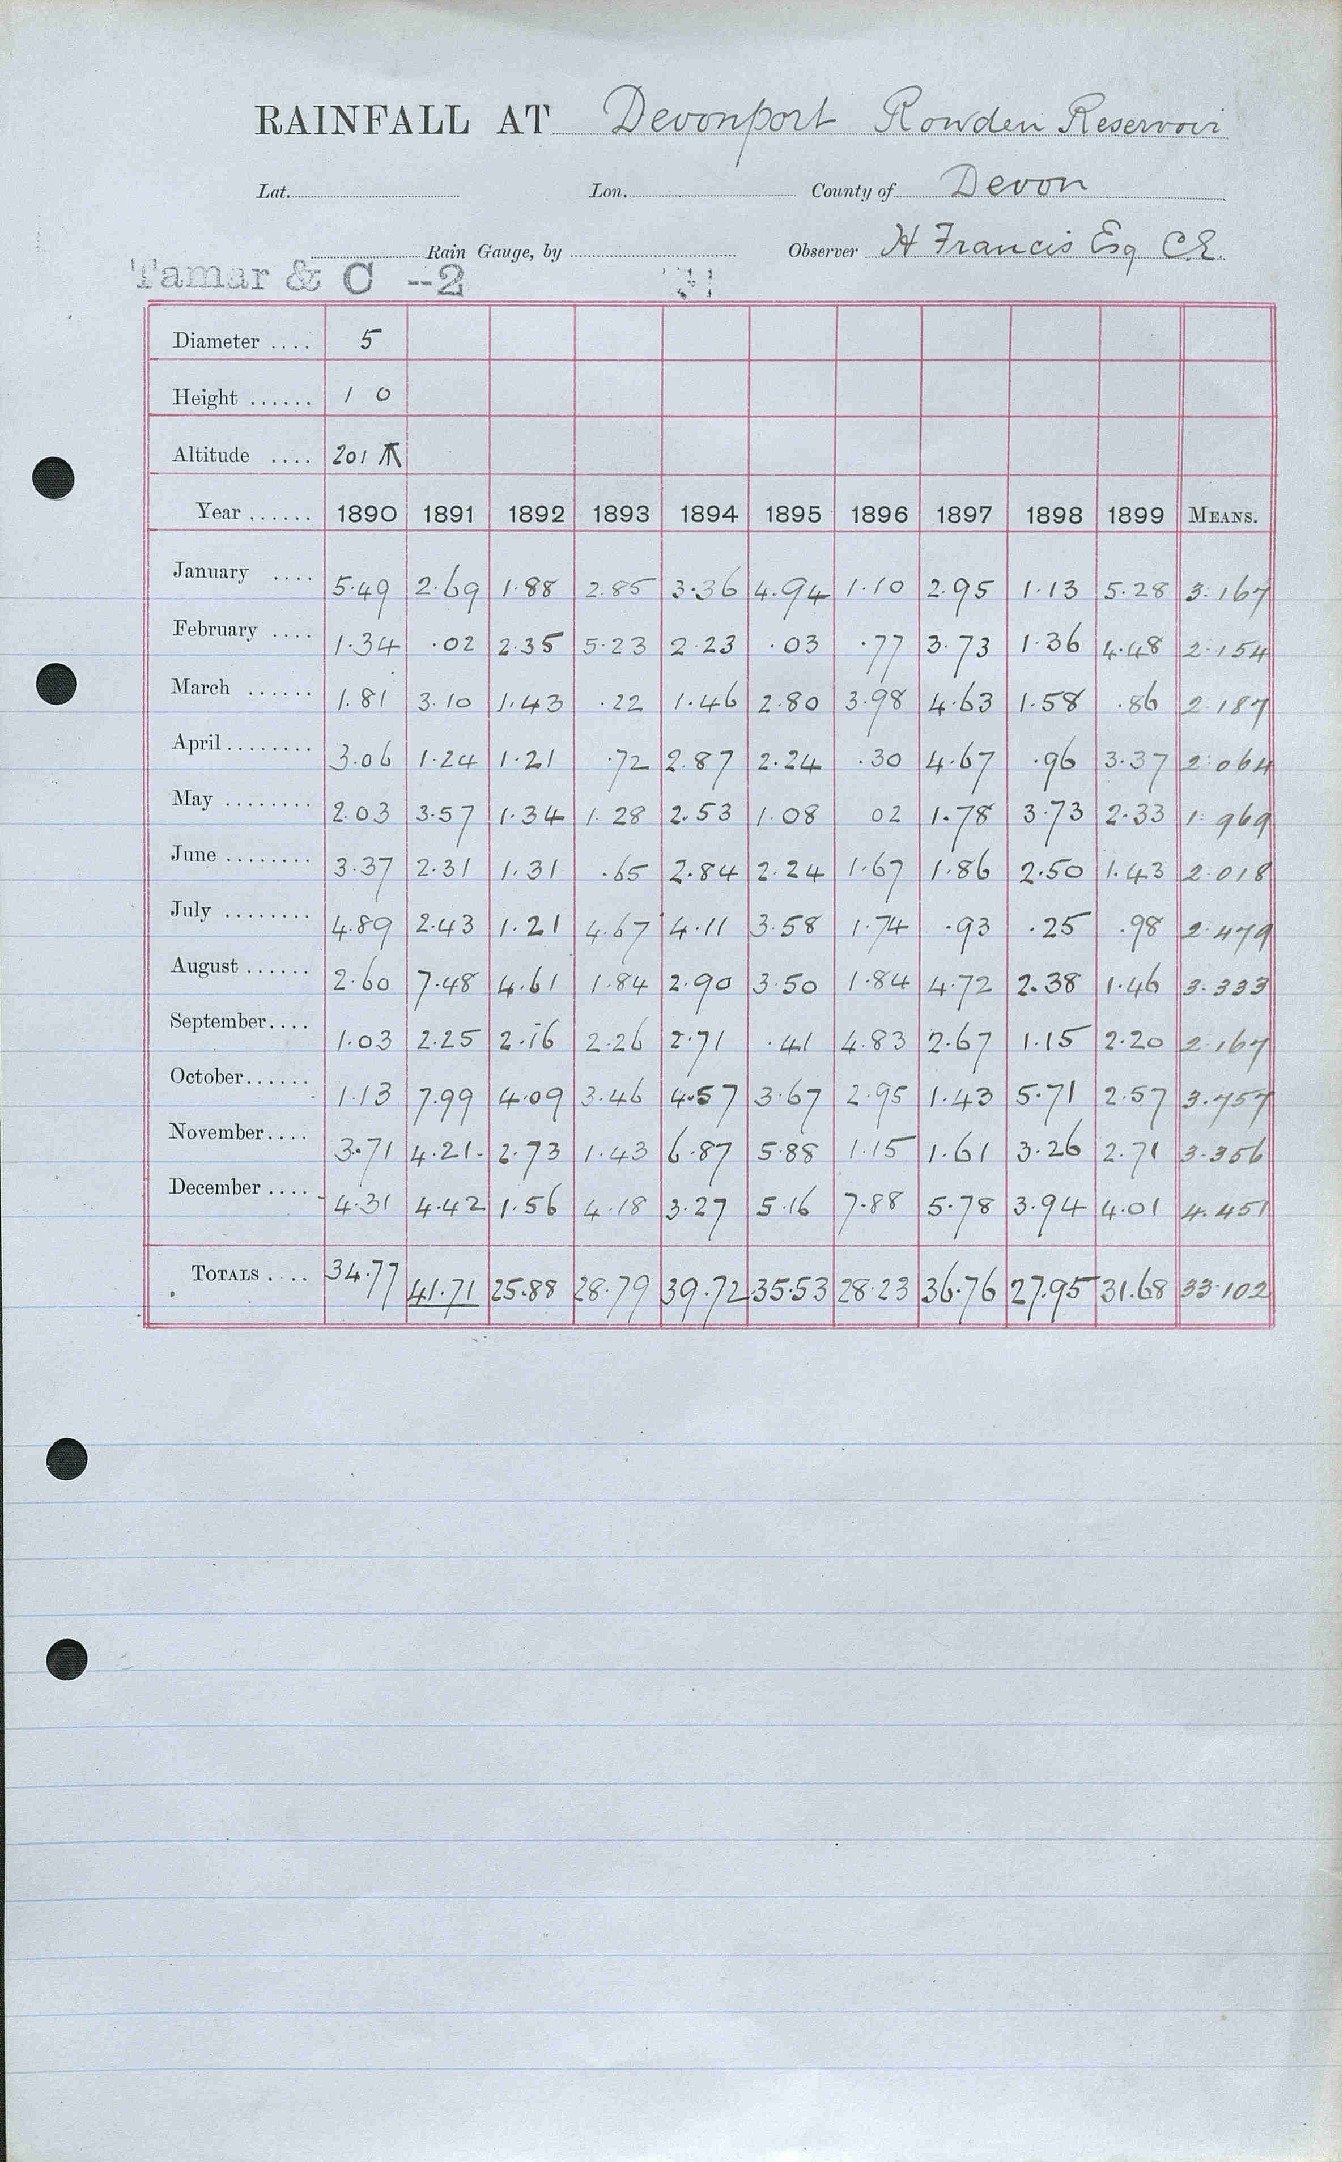 RAINFALL AT Devonport Rowden Reservoir
Lat. Lon. County of Devon
Rain Gauge, by Observer H Francis Esq C.E.
Tamar & C --2
Diameter .... 5
Height ...... 1 0
Altitude .... 201
Year ...... 1890 1891 1892 1893 1894 1895 1896 1897 1898 1899 MEANS.
January .... 5.49 2.69 1.88 2.85 3.36 4.94 1.10 2.95 1.13 5.28 3.167
February .... 1.34 .02 2.35 5.23 2.23 .03 .77 3.73 1.36 4.48 2.154
March ...... 1.81 3.10 1.43 .22 1.46 2.80 3.98 4.63 1.58 .86 2.187
April ........ 3.06 1.24 1.21 .72 2.87 2.24 .30 4.67 .96 3.37 2.064
May ........ 2.03 3.57 1.34 1.28 2.53 1.08 02 1.78 3.73 2.33 1.969
June ........ 3.37 2.31 1.31 .65 2.84 2.24 1.67 1.86 2.50 1.43 2.018
July ........ 4.89 2.43 1.21 4.67 4.11 3.58 1.74 .93 .25 .98 2.479
August ...... 2.60 7.48 4.61 1.84 2.90 3.50 1.84 4.72 2.38 1.46 3.333
September.... 1.03 2.25 2.16 2.26 2.71 .41 4.83 2.67 1.15 2.20 2.167
October...... 1.13 7.99 4.09 3.46 4.57 3.67 2.95 1.43 5.71 2.57 3.757
November.... 3.71 4.21. 2.73 1.43 6.87 5.88 1.15 1.61 3.26 2.71 3.356
December .... 4.31 4.42 1.56 4.18 3.27 5.16 7.88 5.78 3.94 4.01 4.451
TOTALS .... 34.77 41.71 25.88 28.79 39.72 35.53 28.23 36.76 27.95 31.68 33.102